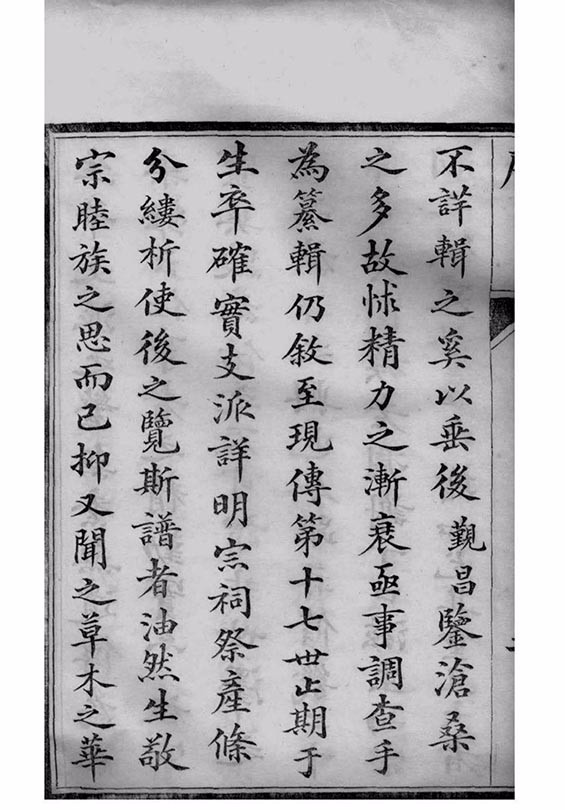 不詳輯之奚以垂後覲昌鑒滄桑
之多故怵精力之漸衰亟事調查手
為纂輯仍敘至現傳第十七世止期于
生卒確實支派詳明宗祠祭產條
分縷析使後之覽斯譜者油然生敬
宗睦族之思而已抑又聞之草木之華